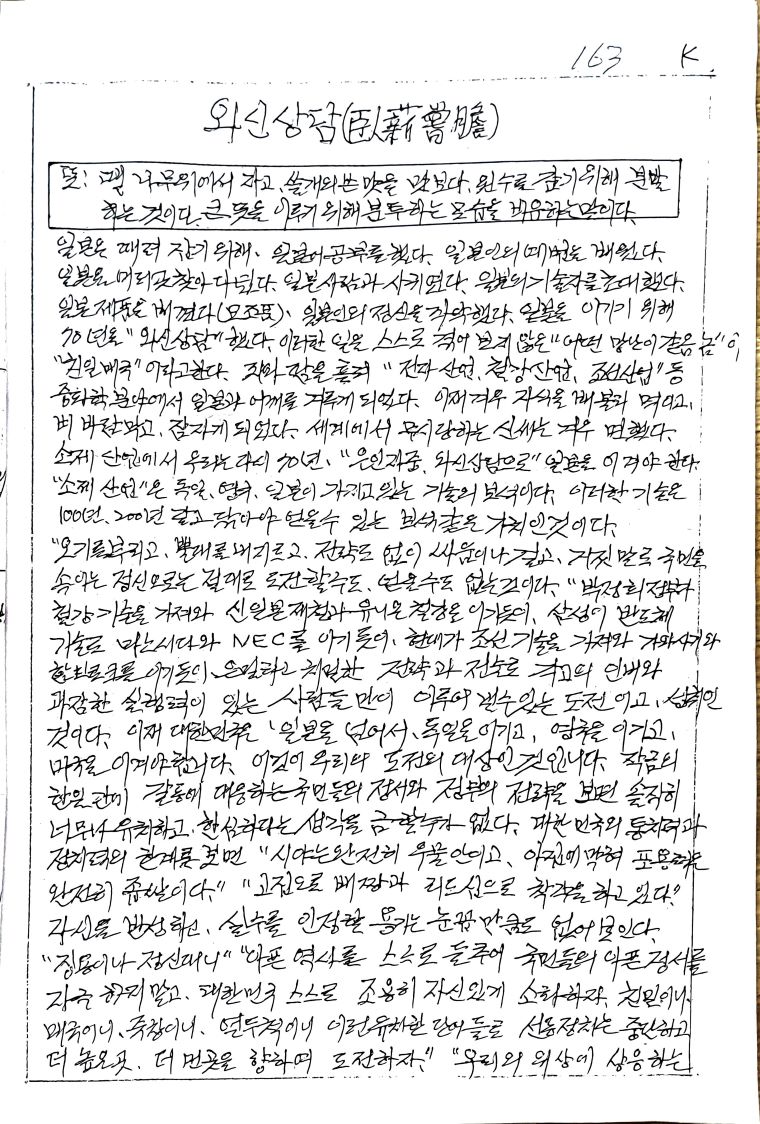 163 K
와신상담(臥薪嘗膽)
뜻: 땔 나무위에서 자고, 쓸개의 쓴 맛을 맛보다. 원수를 갚기 위해 분발
하는 것이다. 큰 뜻을 이루기 위해 분투하는 모습을 비유하는 말이다.
일본은 때려 잡기 위해, 일본어 공부를 했다. 일본인의 매너도 배웠다.
일본을 머리로 찾아 다녔다. 일본사람과 사귀었다. 일본의 기술자를 초대했다.
일본 제품을 베꼈다(모조품). 일본인의 정신을 직악했다. 일본을 이기기 위해
70년을 "와신상담"했다. 이러한 일을 스스로 겪어 보지 않은 "어떤 망난이 같음 놈"이
"친일매국"이라고 한다. 피와 땀을 흘려 "전자산업, 철강산업, 조선산업" 등
중화학 분야에서 일본과 어깨를 겨루게 되었다. 이제 겨우 자식을 배불리 먹이고,
비 바람 막고, 잠자게 되었다. 세계에서 무시당하는 신세는 겨우 면했다.
소재 산업에서 우리는 다시 70년, "은인자중, 와신상담으로" 일본을 이겨야 한다.
"소재 산업"은 독일, 영국, 일본이 가지고 있는 기술의 보석이다. 이러한 기술은
100년, 200년 갈고 닦아야 얻을 수 있는 보석 같은 가치인 것이다.
"오기를 부리고, 뗏대를 버리고, 전략도 없이 싸움이나 걸고, 거짓 말로 국민을
속이는 정신으로는 절대로 도전할 수도, 얻을 수도 없는 것이다." 박정희 정부가
철강 기술을 가져와 신일본제철과 유니온 철강을 이기듯이, 삼성이 반도체
기술로 마쓰시다와 NEC를 이기듯이, 현대가 조선 기술을 가져와 가와사키와
할브로크를 이기듯이, 은밀하고 치밀한 전략과 전술로 각고의 인내와
과감한 실행력이 있는 사람들 만이 이루어 낼 수 있는 도전이고, 성취인
것이다. 이제 대한민국은 "일본을 넘어서, 독일을 이기고, 영국을 이기고,
미국을 이겨야 합니다. 이것이 우리의 도전의 대상인 것입니다. 작금의
한일관계 갈등에 대응하는 국민들의 정서와 정부의 전략을 보면 솔직히
너무나 유치하고, 한심하다는 생각을 금할 수가 없다. 대한민국의 통치력과
정치력의 한계를 보면 "시야는 완전히 우물안이고, 아집에 막혀 포용력은
완전히 좁쌀이다." "고집으로 배짱과 리드십으로 착각을 하고 있다."
자신을 반성하고, 실수를 인정할 용기는 눈꼽 만큼도 없어 보인다.
"징용이나 정신대니" "아픈 역사를 스스로 들추어 국민들의 아픈 정서를
자극 하지 말고, 대한민국 스스로 조용히 자신있게 소화하자. 친일이니,
매국이니, 죽창이니, 열두척이니 이런 유치한 단어들로 선동정치는 중단하고
더 높은 곳, 더 먼곳을 향하여 도전하자." "우리의 위상에 상응하는